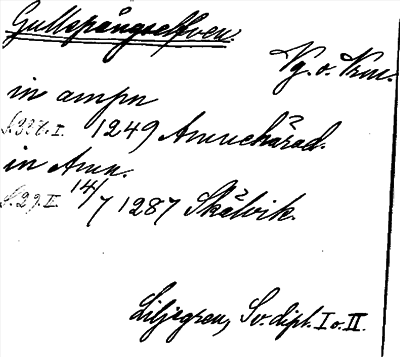 Gullspångselfven.
Vg. o. Vrm.
in ampn
S. 327. I. 1249 Amnehärad.
in Amn.
S. 29. II. 14/7 1287 Skålvik.
Liljegren, Sv. dipl. I o. II.